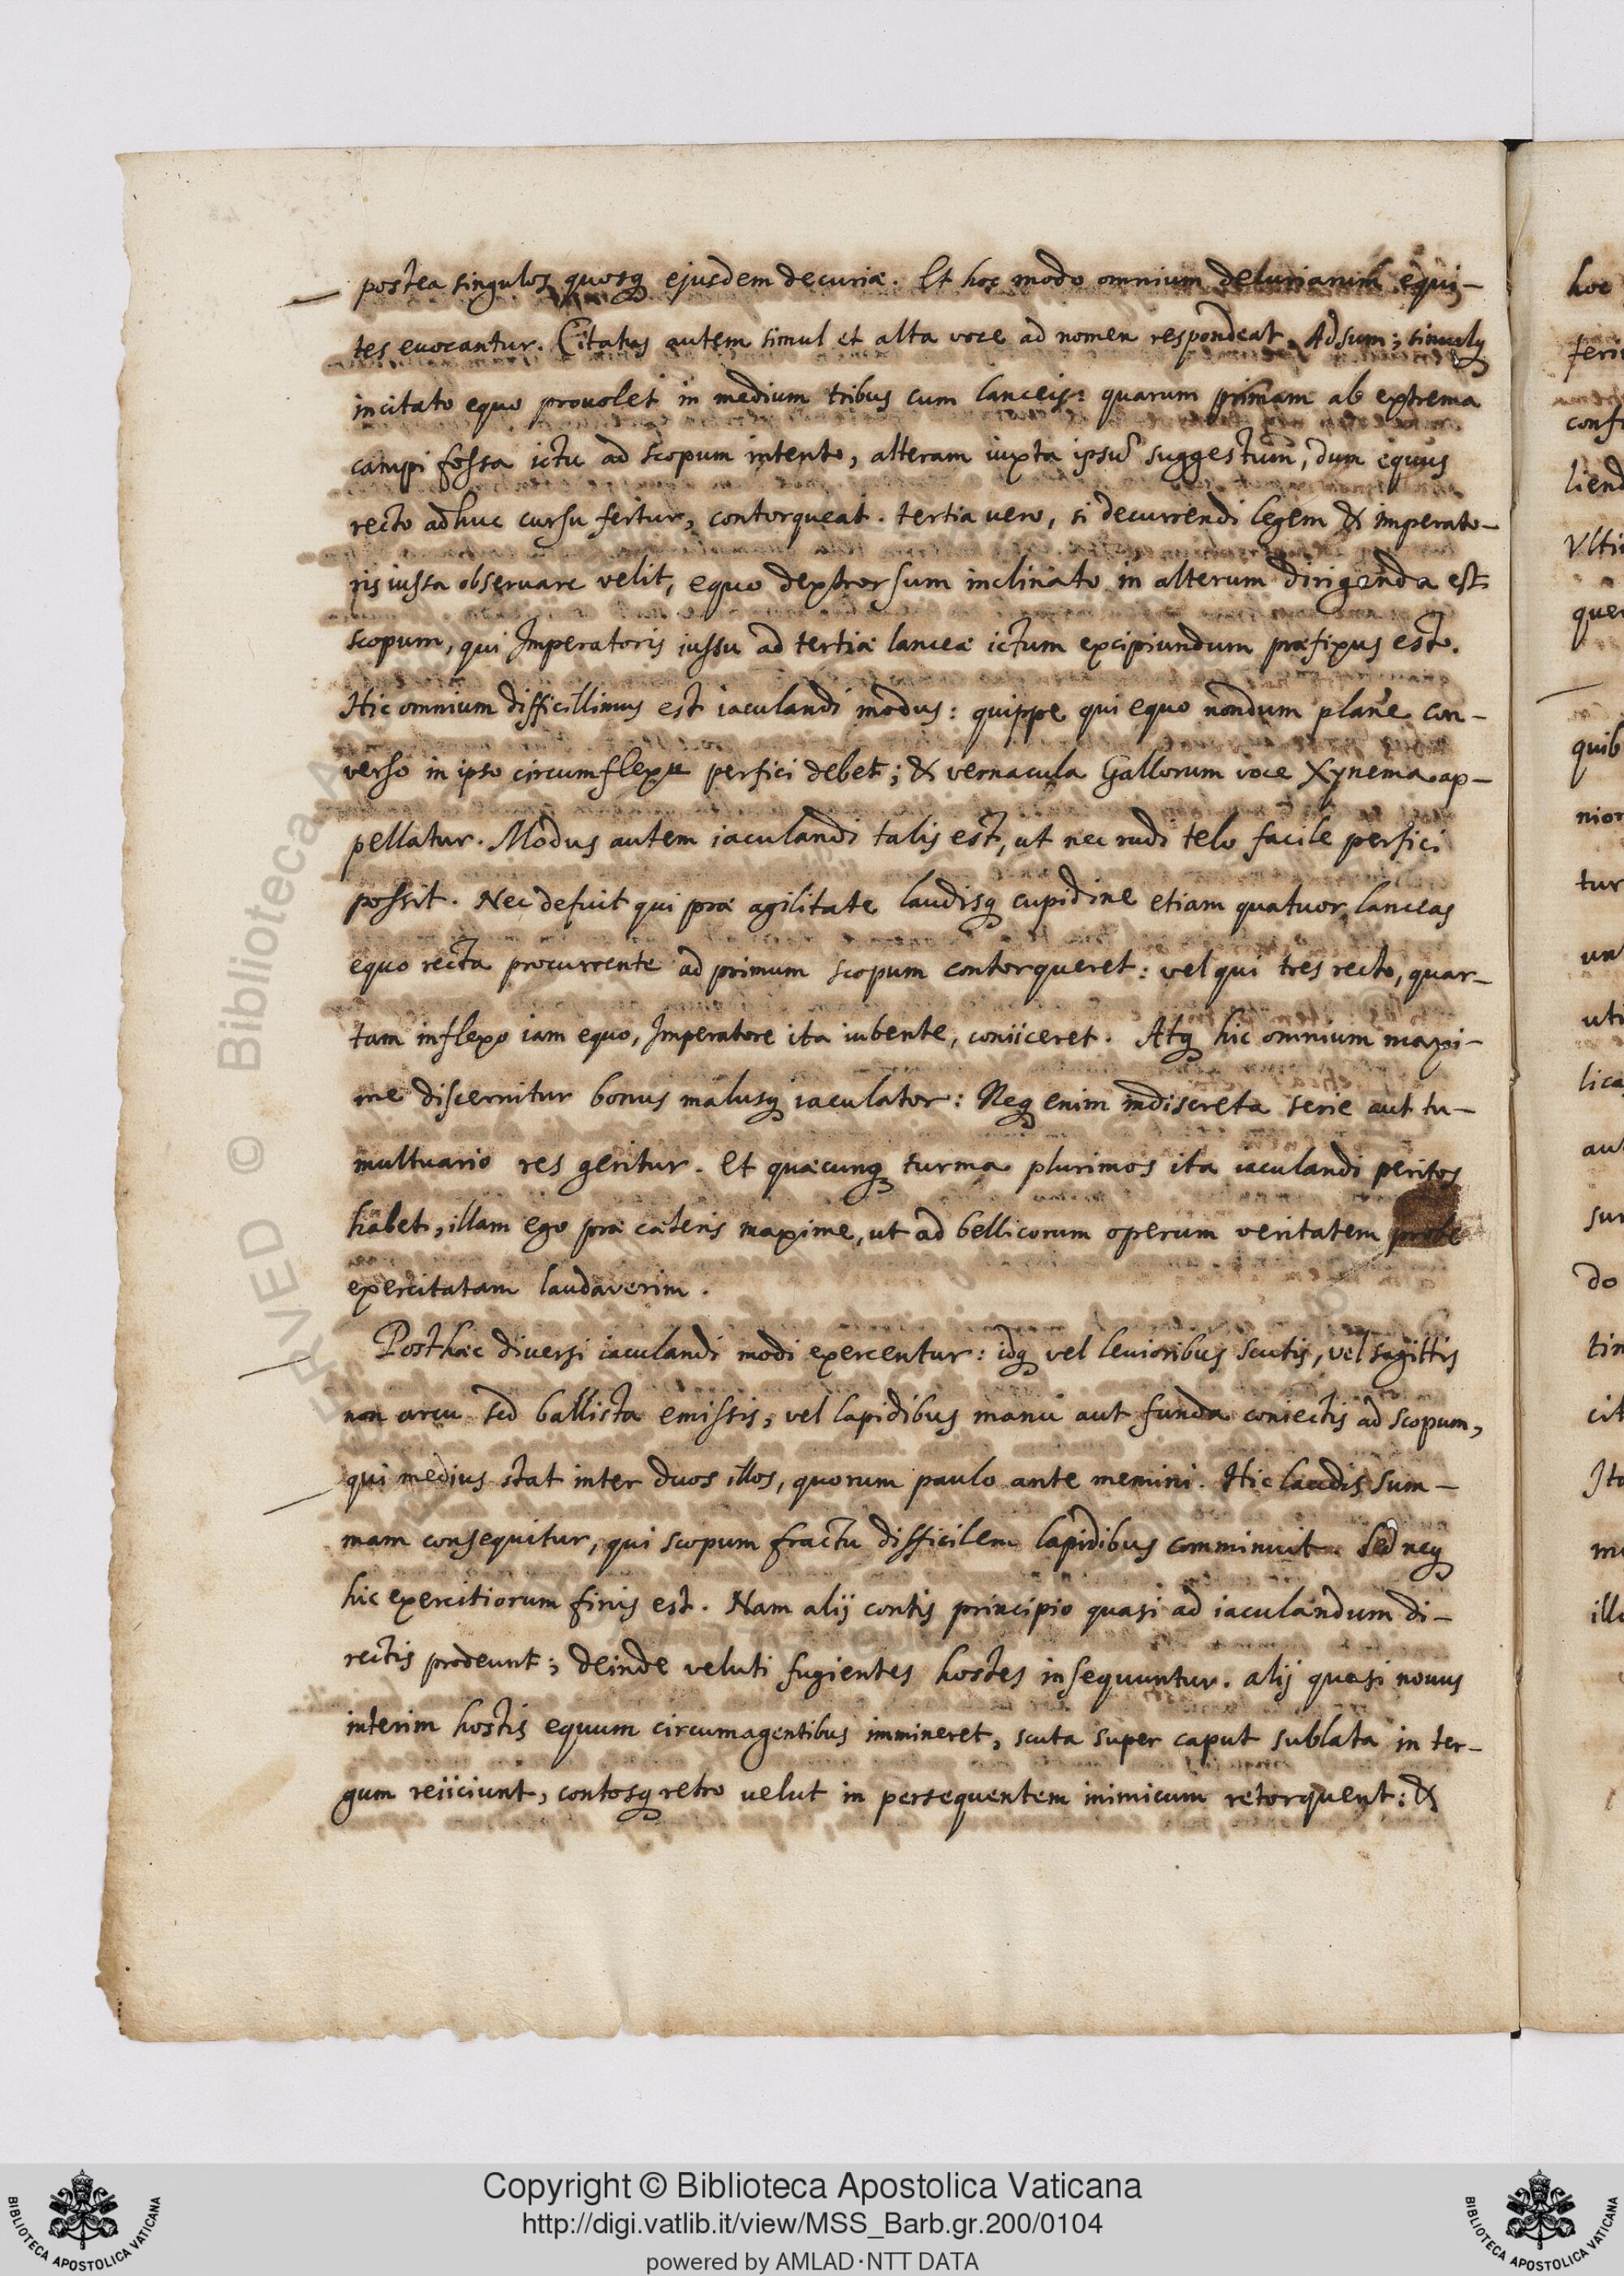 postea singulos quosq ejusdem decuriæ. Et hoc modo omnium decuriarum equi-
tes evocantur. Citatus autem simul et alta voce ad nomen respondeat, Adsum; simulq
incitato equo provolet in medium tribus cum lanceis: quarum primam ab extrema
campi fossa ictu ad scopum intento, alteram iuxta ipsũ suggestum, dum equus
recto adhuc cursu fertur, contorqueat. tertia vero, si decurrendi legem & Imperato-
ris iussa observare velit, equo dextrorsum inclinato in alterum dirigenda est
scopum, qui Imperatoris iussu ad tertiæ lanceæ ictum excipiundum præfixus est.
Hic omnium difficillimus est iaculandi modus: quippe qui equo nondum plane con-
verso in ipso circumflexu perfici debet; & vernacula Gallorum voce Xynema ap-
pellatur. Modus autem iaculandi talis est, ut nec rudi telo facile perfici
possit. Nec defuit qui præ agilitate laudisq cupidine etiam quatuor lanceas
equo recta procurrente ad primum scopum contorqueret: vel qui tres recto, quar-
tam inflexo iam equo, Imperatore ita iubente, coniiceret. Atq hic omnium maxi-
me discernitur bonus malusq iaculator: Neq enim indiscreta serie aut tu-
multuario res geritur. Et quæcunq turma plurimos ita iaculandi peritos
habet, illam ego præ cæteris maxime, ut ad bellicorum operum veritatem probe
exercitatam laudaverim.
Posthæc diversi iaculandi modi exercentur: idq vel levioribus scutis, vel sagittis
non arcu sed ballista emissis, vel lapidibus manu aut funda coniectis ad scopum,
qui medius stat inter duos illos, quorum paulo ante memini. Hic laudis sum-
mam consequitur, qui scopum fractu difficilem lapidibus comminuit. Sed neq
hic exercitiorum finis est. Nam alij contis principio quasi ad iaculandum di-
rectis prodeunt; deinde veluti fugientes hostes insequuntur. alij quasi novus
interim hostis equum circumagentibus immineret, scuta super caput sublata in ter-
gum reiiciunt, contosq retro velut in persequentem inimicum retorquent: &
hoc
feri
conf
liend
Vlti
que
quib
nior
tur
uti
lica
au
sur
do
tim
cit
Ita
illo
Copyright © Biblioteca Apostolica Vaticana
http://digi.vatlib.it/view/MSS_Barb.gr.200/0104
powered by AMLAD·NTT DATA
BIBLIOTECA APOSTOLICA VATICANA
BIBLIOTECA APOSTOLICA VATICANA